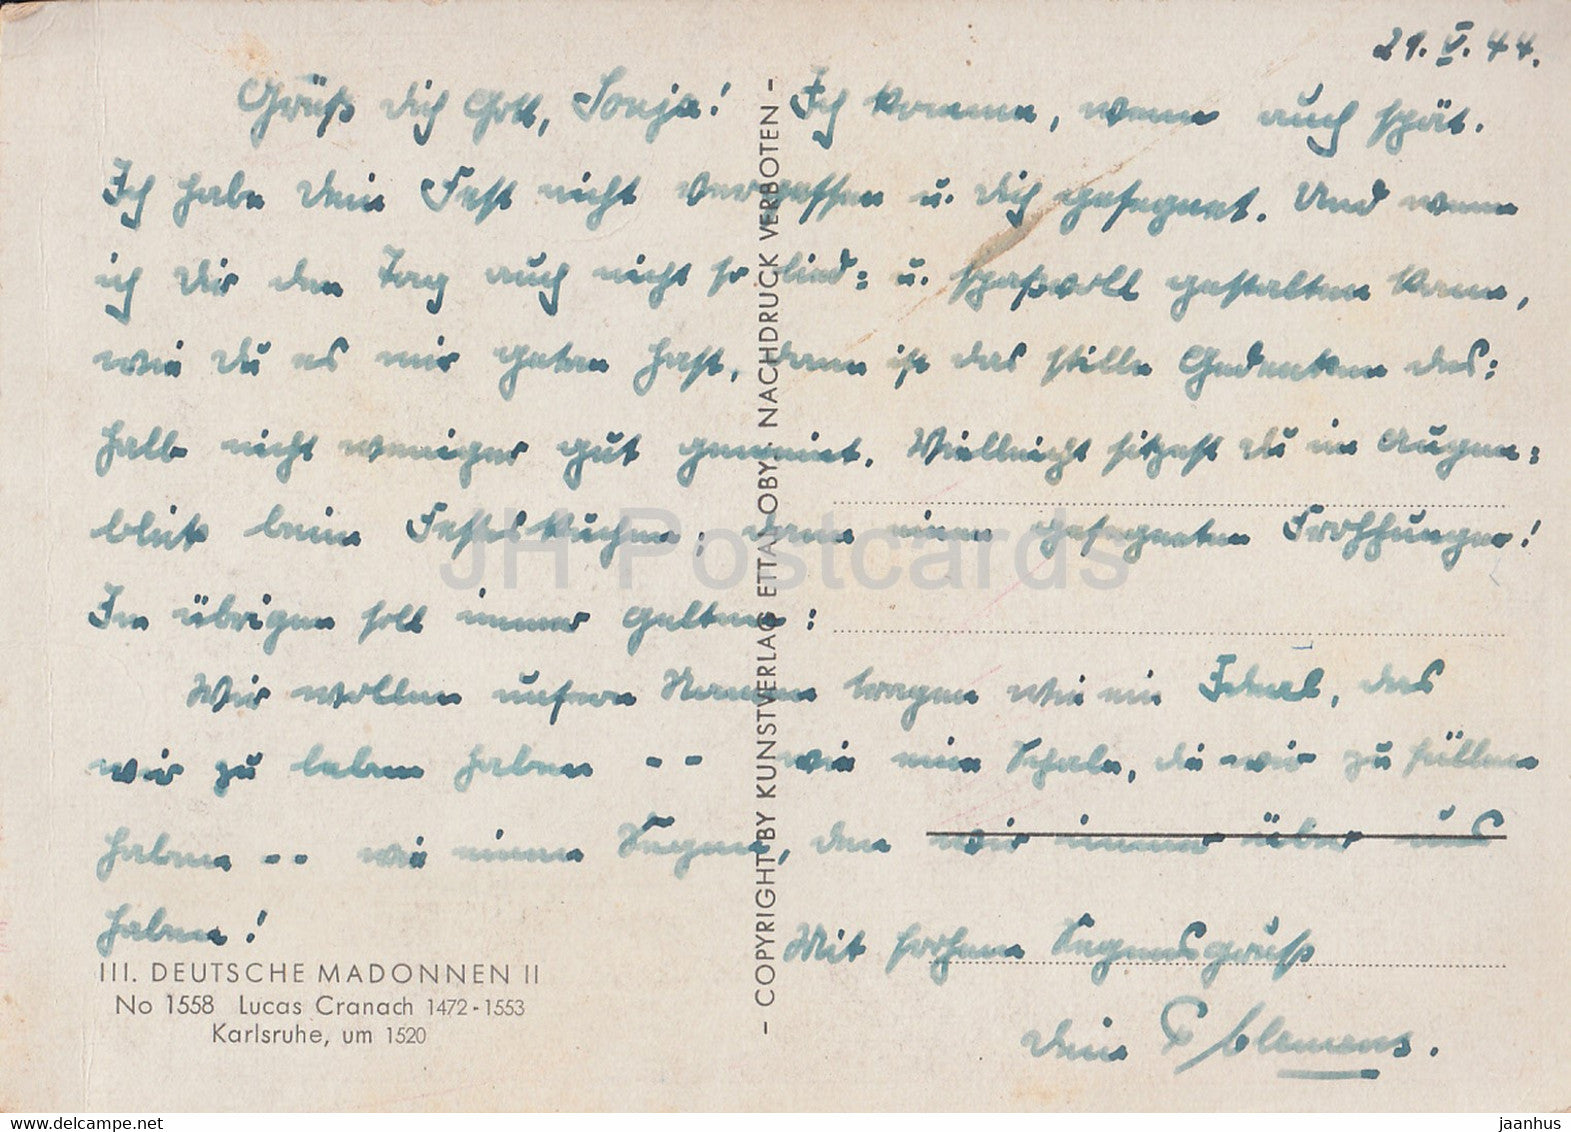 21. V. 44.
Grüß dich Gott, Sonja! Ich komme, wenn auch spät.
Ich habe Dein Fest nicht vergessen u. Dich gesegnet. Und wenn
ich Dir den Tag auch nicht so lied= u. spaßvoll gestalten kann,
wie Du es mir getan hast, dann ist das stille Gedenken des=
halb nicht weniger gut gemeint. Vielleicht sitzest Du im Augen=
blick beim Festkuchen, dann einen gesegneten
Im übrigen soll immer gelten:
Wir wollen unsern Namen tragen wie ein Ideal, das
wir zu leben haben -- wie eine Schale, die wir zu füllen
haben -- wie einen Segen, den wir immer über uns
haben!
Mit frohem Segensgruß
Dein P. Clemens.
III. DEUTSCHE MADONNEN II
No 1558 Lucas Cranach 1472-1553
Karlsruhe, um 1520
- COPYRIGHT BY KUNSTVERLAG ETTAL OBY. NACHDRUCK VERBOTEN -
JH Postcards
www.delcampe.net
jaanhus